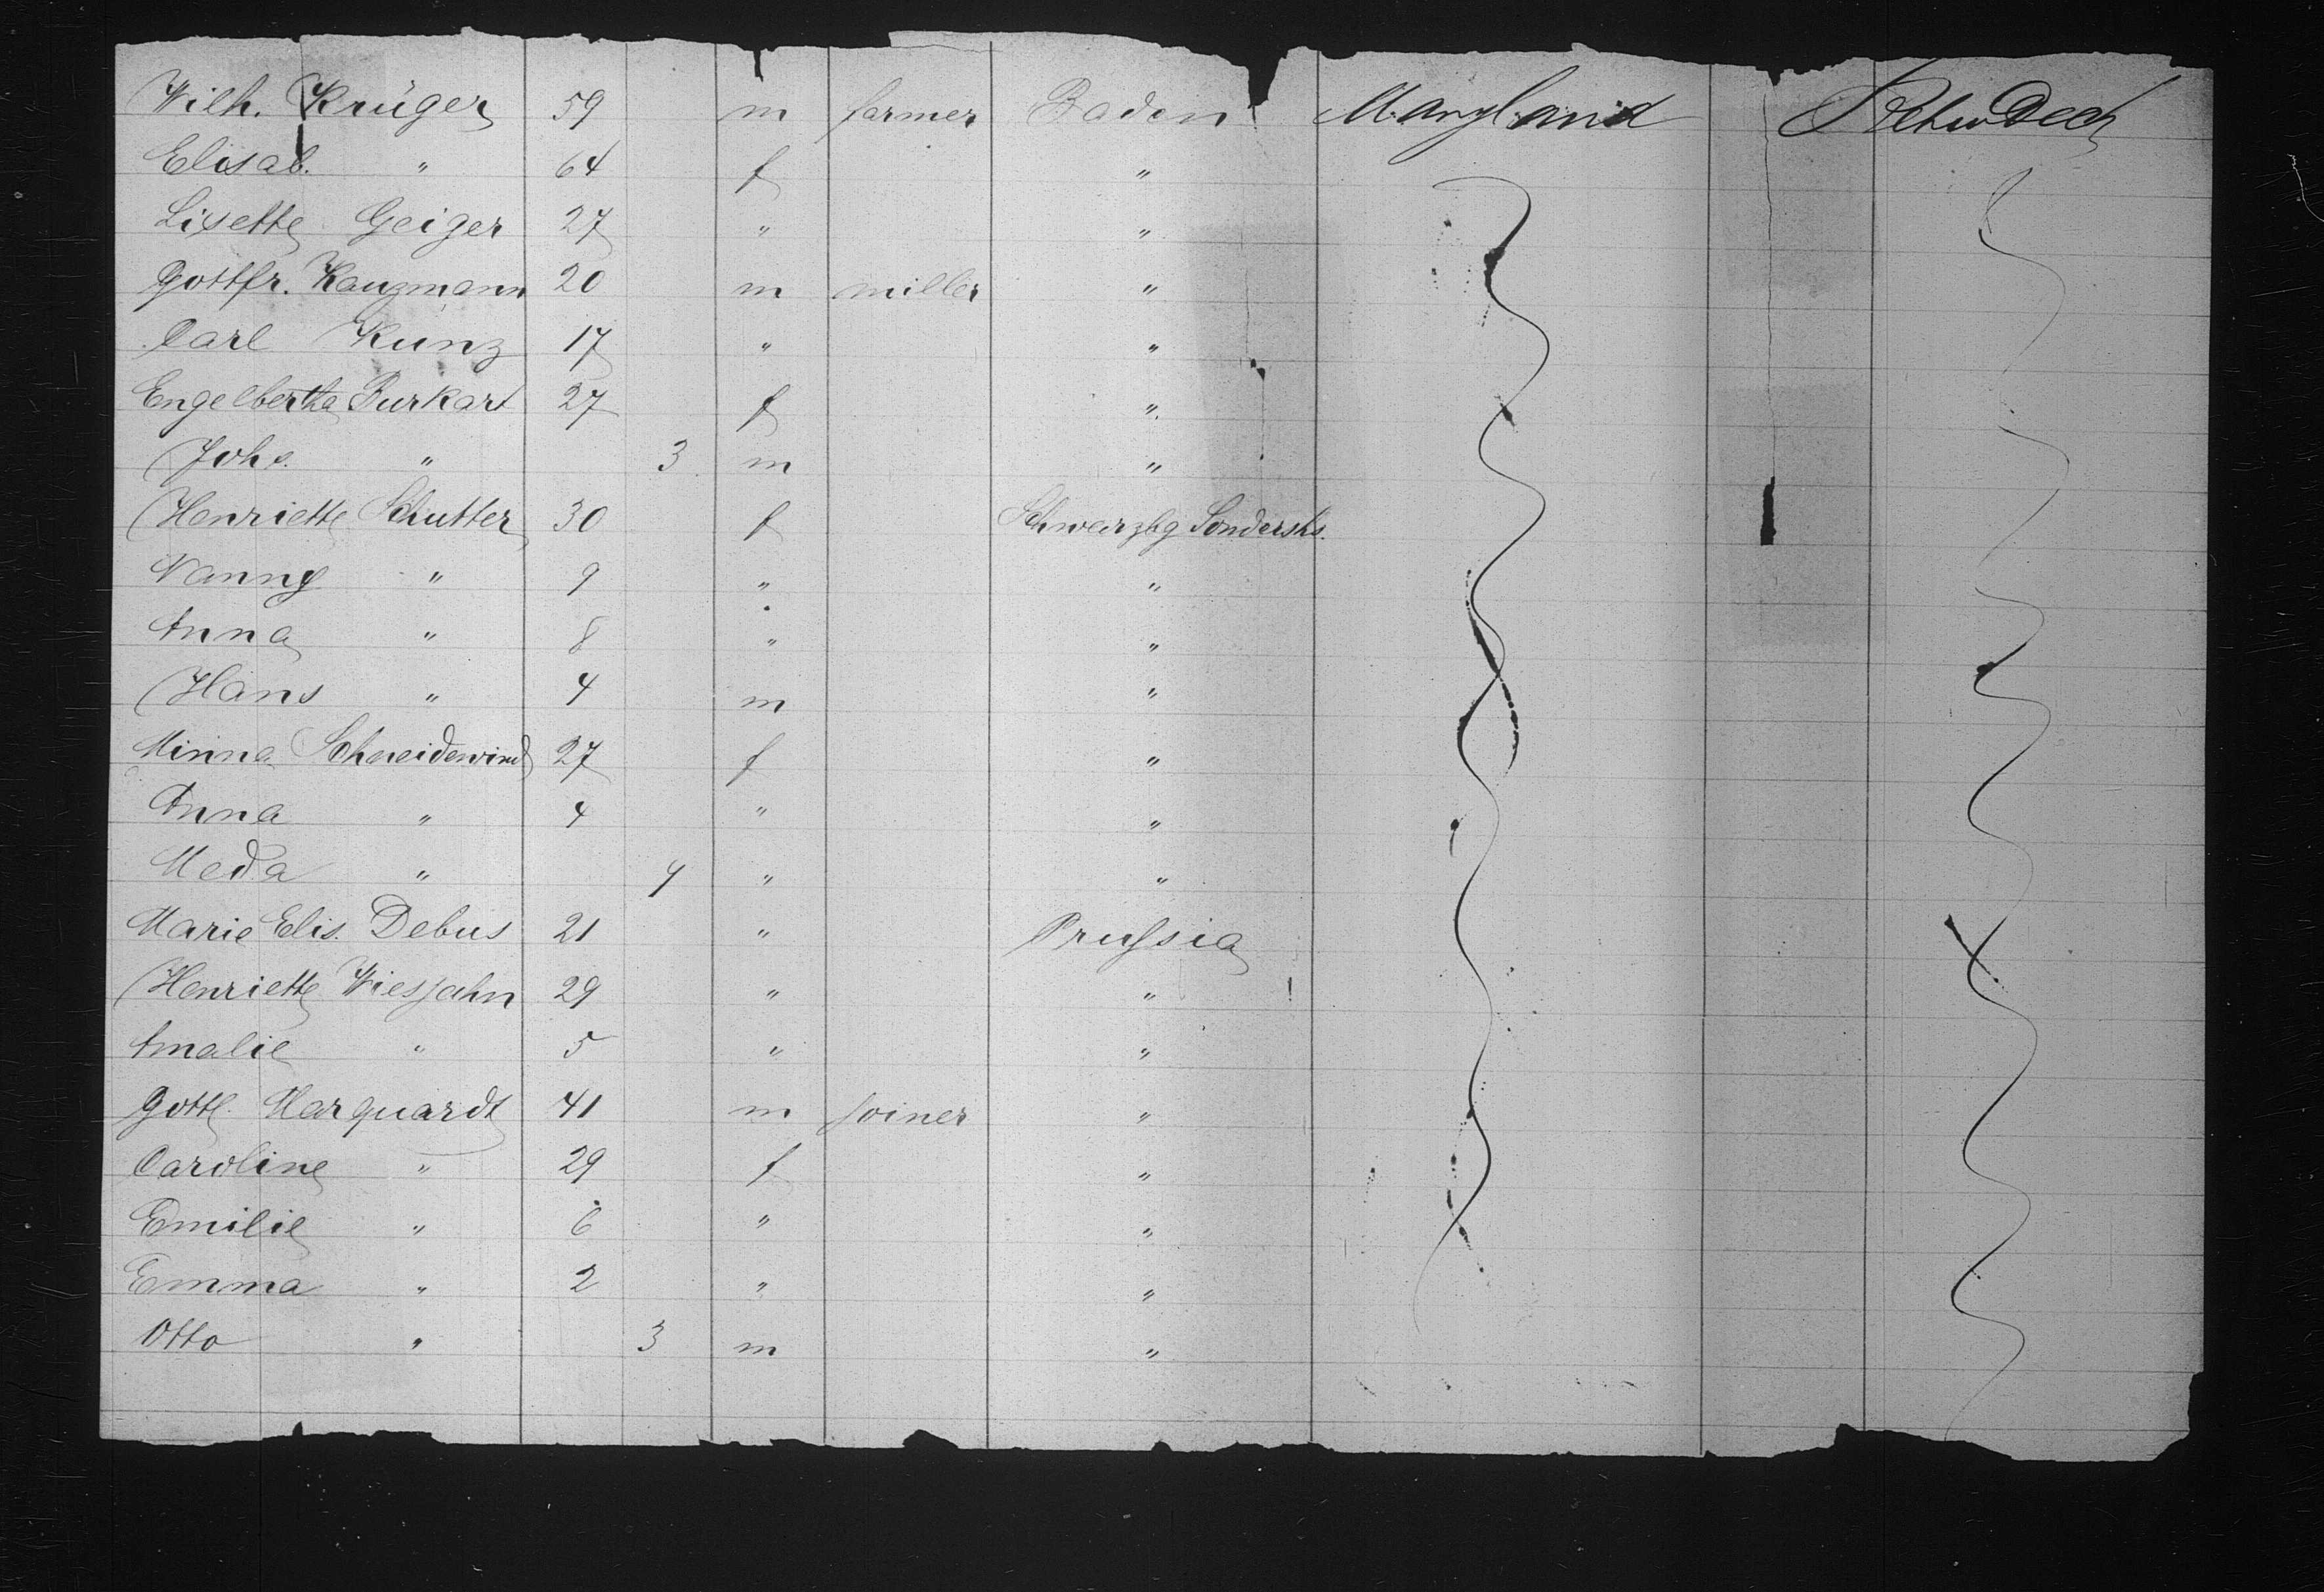 Wilh. Krüger 59 m farmer Baden Maryland Betw Deck
Elisab. " 64 f "
Lisette Geiger 27 " "
Gottfr. Kauzmann 20 m miller "
Carl Kunz 17 " "
Engelbertha Burkart 27 f "
Johs. " 3 m "
Henriette Schutter 30 f Schwarzbg Sondershs.
Nanny " 9 " "
Anna " 8 " "
Hans " 4 m "
Minna Schneidewind 27 f "
Anna " 4 " "
Meda " 4 " "
Marie Elis. Debus 21 " Prussia
Henriette Wiesjahn 29 " "
Amalie " 5 " "
Gottl. Marquardt 41 m joiner "
Caroline " 29 f "
Emilie " 6 " "
Emma " 2 " "
Otto " 3 m "